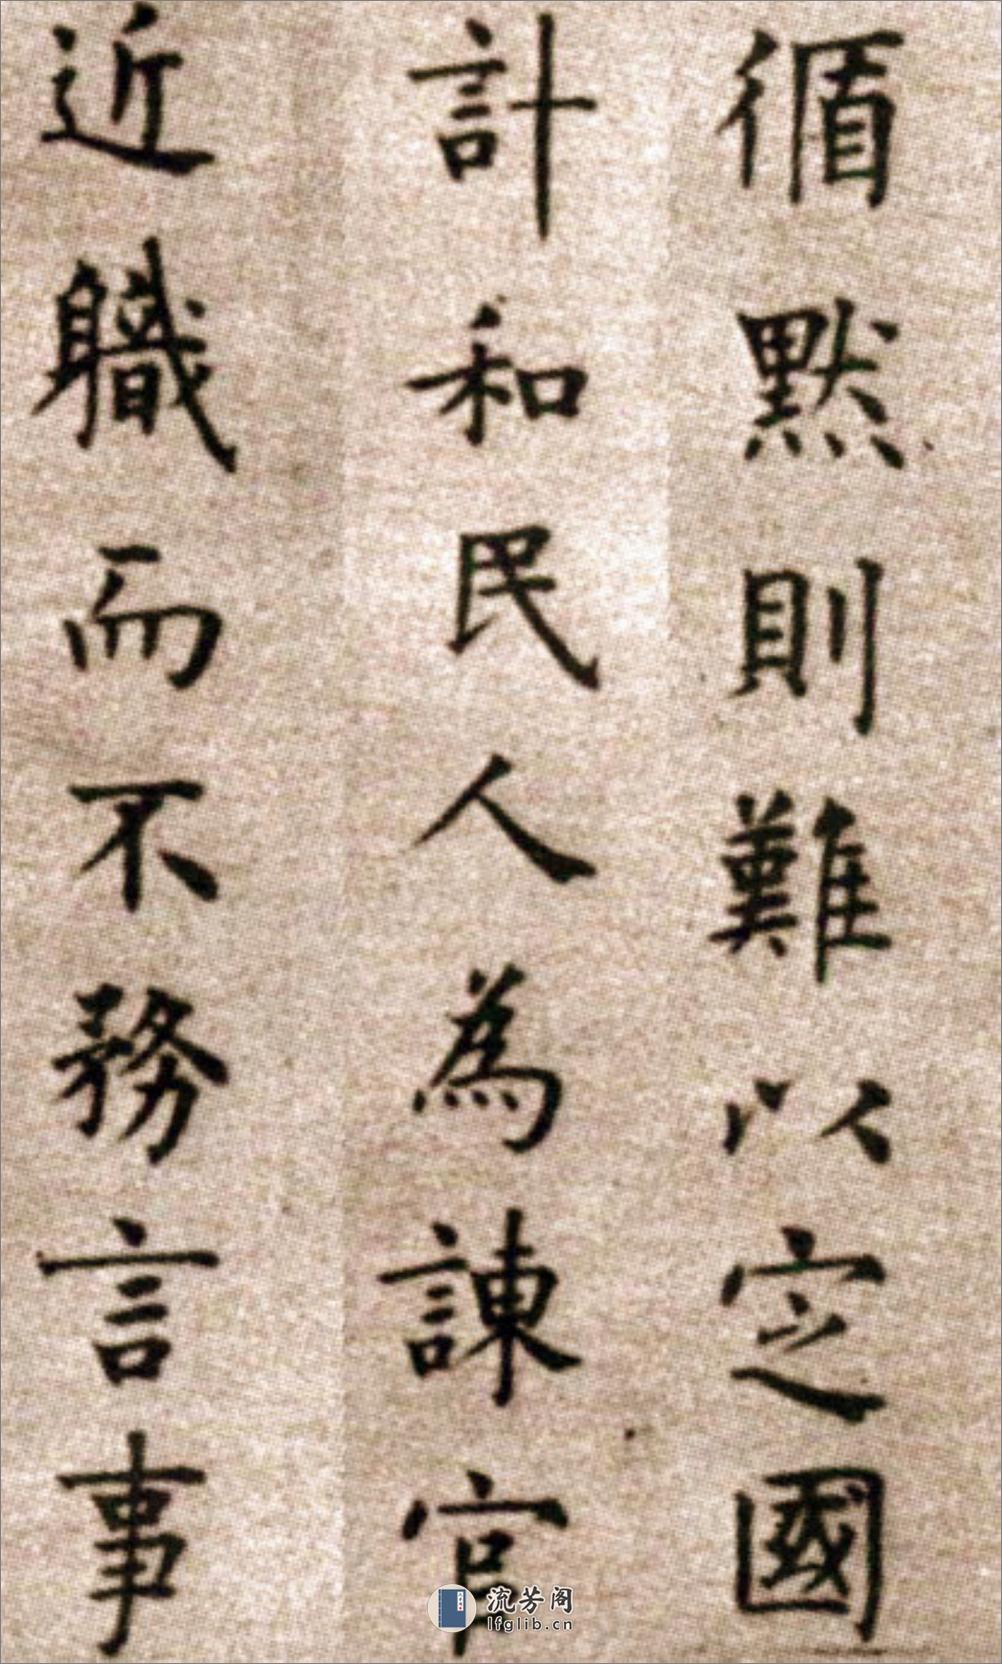 循默則難以定國
計和民人為諫官
近職而不務言事
流芳阁
lfglib.cn